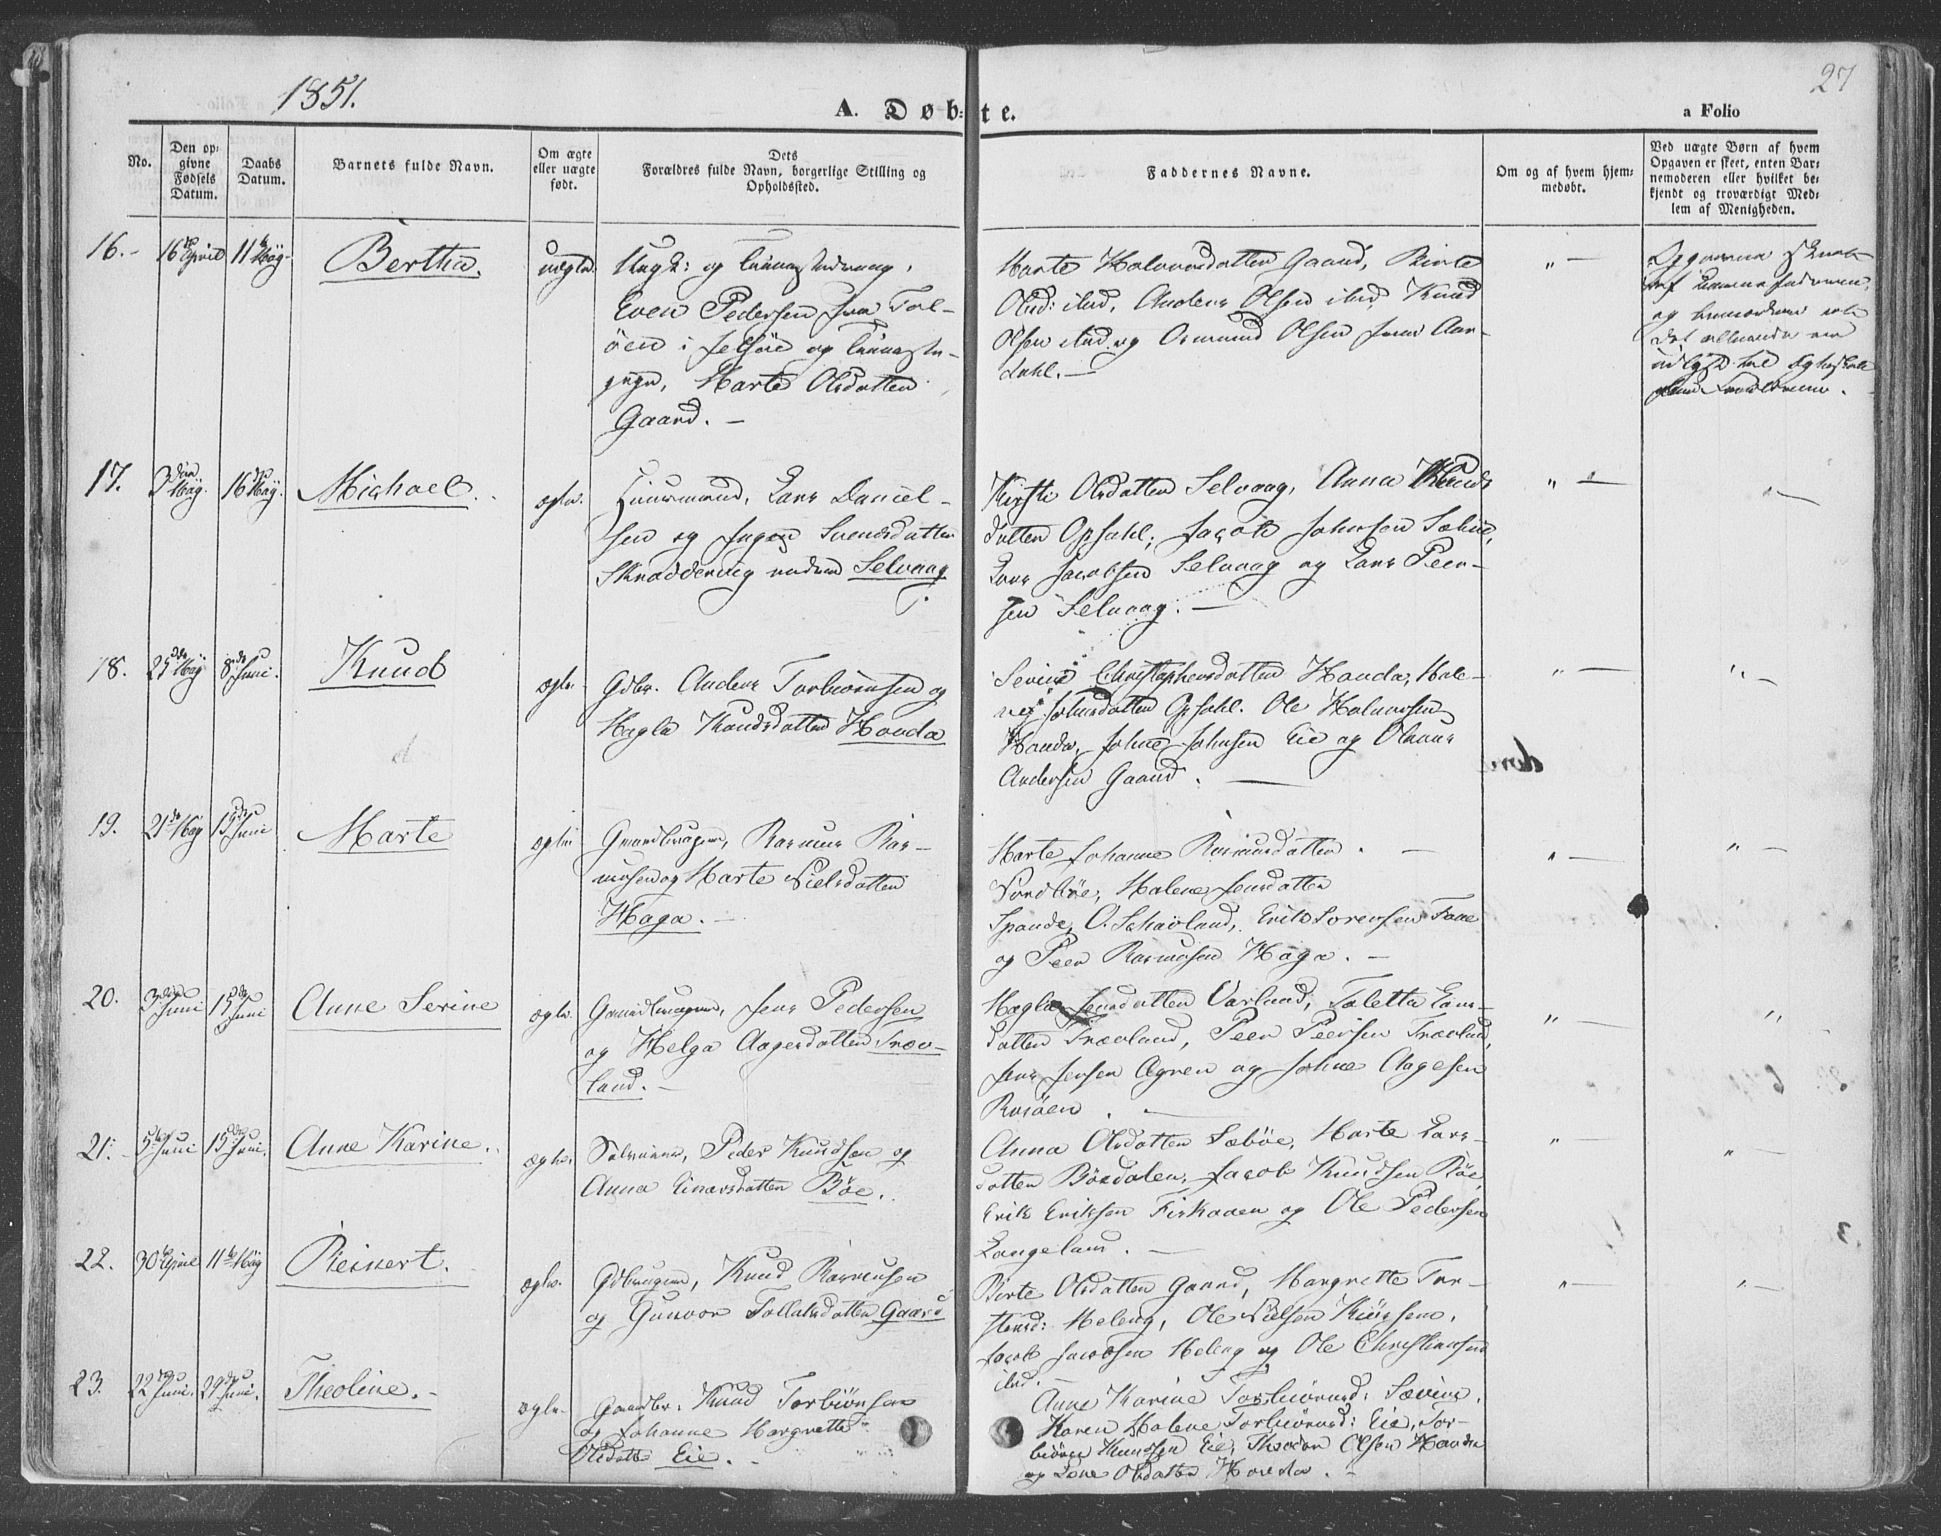 1851.
27
A. Døbte.
a Folio
No.
Den op-
givne
Fødsels
Datum.
Daabs
Datum.
Barnets fulde Navn.
Om ægte
eller uægte
født.
Dets
Forældres fulde Navn, borgerlige Stilling og
Opholdssted.
Faddernes Navne.
Om og af hvem hjem-
medøbt.
Ved uægte Børn af hvem
Opgaven er skeet, enten Bar-
nemoderen eller hvilket be-
kjendt og troværdigt Med-
lem af Menigheden.
16.
16 April
11 Maÿ
Bertha.
uægte.
Ungk: og
Even Pedersen fra Tal-
öen i og
Marte Olsdatter
Gaard. —
Marte Halvorsdatter Gaard, Birte
Olsd: ibid, Anders Olsen ibid, Knud
Olsen ibid og Osmund Olsen fra Aar-
dahl. —
" —
17.
3 Maÿ.
16 Maÿ.
Michael.
ægte.
Huusmand, Lars Daniel-
sen og Inger Svendsdatter
Skraddervig under Selvaag
Kirsti Olsdatter Selvaag, Anna Knuds
datter Opsahl, Jacob Johnsen Sæbøe,
Lars Jacobsen Selvaag og Lars Peer-
sen Selvaag. —
" —
" —
18.
25 Maÿ
8 Juni.
Knud
ægte.
Gdbr. Anders Torbiörnsen og
Hagla Knudsdatter Handa
Sevine Christophersdatter Handa, Hal-
Johnsdatter Opsahl. Ole Halvorsen
Handa, Johne Johnsen Eie og
Andersen Gaard. —
" —
" —
19.
21 Maÿ
15 Juni
Marte
ægte
Gaardbruger, Rasmus Ras-
musen og Marte Nielsdatter
Haga. —
Marte Johanne Rasmusdatter
Nordböe, Malene Jonsdatter
Spande, O. Schavland, Erik Sorensen Tane
og Peer Rasmusen Haga. —
" —
" —
20.
3 Juni
15 Juni
Anne Serine
ægte.
Gaardbruger, Jens Pedersen
og Helga Aagesdatter Træv-
land. —
Hagla Jensdatter Varland, Taletta Lars-
datter Trævland, Peer Peersen Trævland,
Jens Jensen Ogren og Johne Aagesen
Rosöen. —
" —
"
21.
5 Juni
15 Juni.
Anne Karine.
ægte.
Peder Knudsen og
Anna Einarsdatter Böe.
Anna Olsdatter Sæböe, Marte Lars-
datter Börsdalen, Jacob Knudsen Böe,
Erik Eriksen Fiskaaen og Ole Pedersen
Langeland. —
"
" —
22.
30 April
11 Maÿ
Reinert.
ægte.
Gdbruger, Knud Rasmusen
og Gunvor Tollaksdatter Gaard
Birte Olsdatter Gaard, Margrette Tor-
stensd: Meleng, Ole Nielsen
Jacob Jacobsen Meleng og Ole Christiansen
ibid. —
" —
" —
23.
22 Juni.
29 Juni.
Theoline. —
ægte.
Gaardbr. Knud Torbiörnsen
og Johanne Margrette
Olsdatt Eie. —
Anne Karine Torbiörnsd: Sævig.
Karen Malene Torbiörnsd: Eie, Tor-
biörn Knudsen Eie, Theodor Olsen Handa
og Lene Olsdatter Handa. —